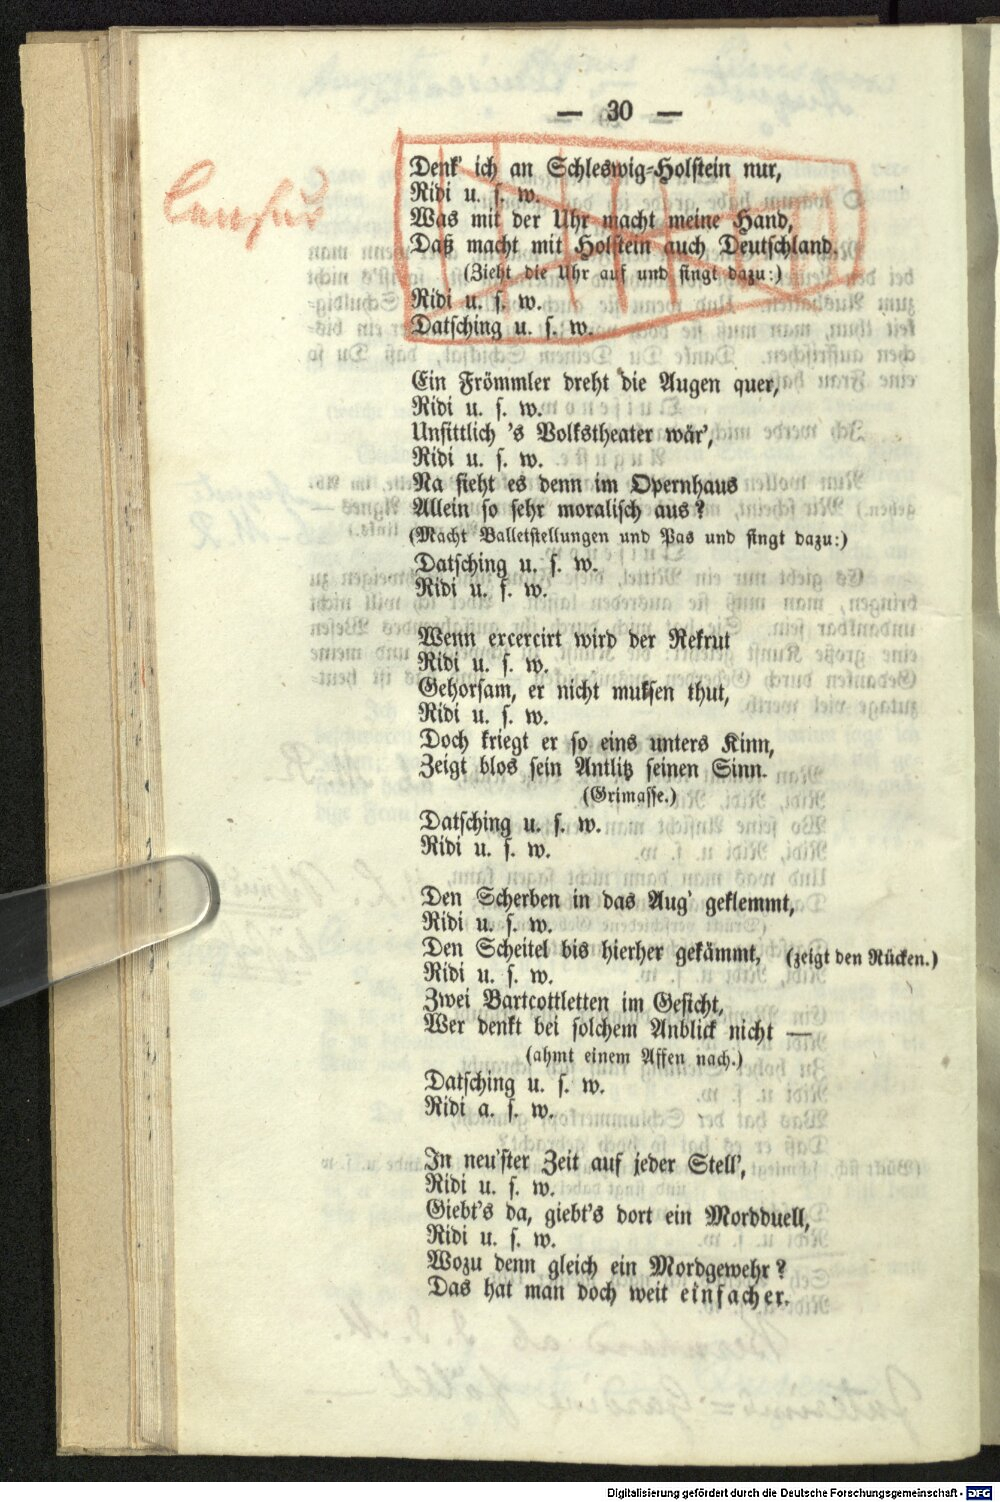 — 30 —
Denk' ich an Schleswig-Holstein nur,
Ridi u. s. w.
Censur
Was mit der Uhr macht meine Hand,
Daß macht mit Holstein auch Deutschland.
(Zieht die Uhr auf und singt dazu:)
Ridi u. s. w.
Datsching u. s. w.
Ein Frömmler dreht die Augen quer,
Ridi u. s. w.
Unsittlich 's Volkstheater wär',
Ridi u. s. w.
Na sieht es denn im Opernhaus
Allein so sehr moralisch aus?
(Macht Balletstellungen und Pas und singt dazu:)
Datsching u. s. w.
Ridi u. s. w.
Wenn ercercirt wird der Rekrut
Ridi u. s. w.
Gehorsam, er nicht muksen thut,
Ridi u. s. w.
Doch kriegt er so eins unters Kinn,
Zeigt blos sein Antlitz seinen Sinn.
(Grimasse.)
Datsching u. s. w.
Ridi u. s. w.
Den Scherben in das Aug' geklemmt,
Ridi u. s. w.
Den Scheitel bis hierher gekämmt, (zeigt den Rücken.)
Ridi u. s. w.
Zwei Bartcottletten im Gesicht,
Wer denkt bei solchem Anblick nicht —
(ahmt einem Affen nach.)
Datsching u. s. w.
Ridi a. s. w.
In neu'ster Zeit auf jeder Stell',
Ridi u. s. w.
Giebt's da, giebt's dort ein Mordduell,
Ridi u. s. w.
Wozu denn gleich ein Mordgewehr?
Das hat man doch weit einfacher.
Digitalisierung gefördert durch die Deutsche Forschungsgemeinschaft - DFG